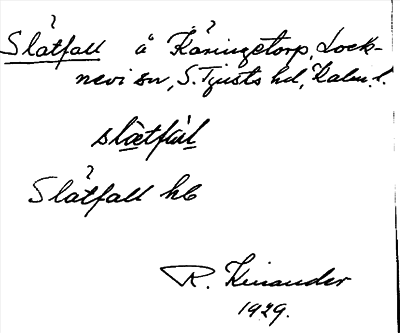 Slåtfall å Käringetorp, Lock-
nevi sn, S. Tjusts hd, Kalm. l.
slåtfàl
Slåtfall hb
R. Kinander
1929.